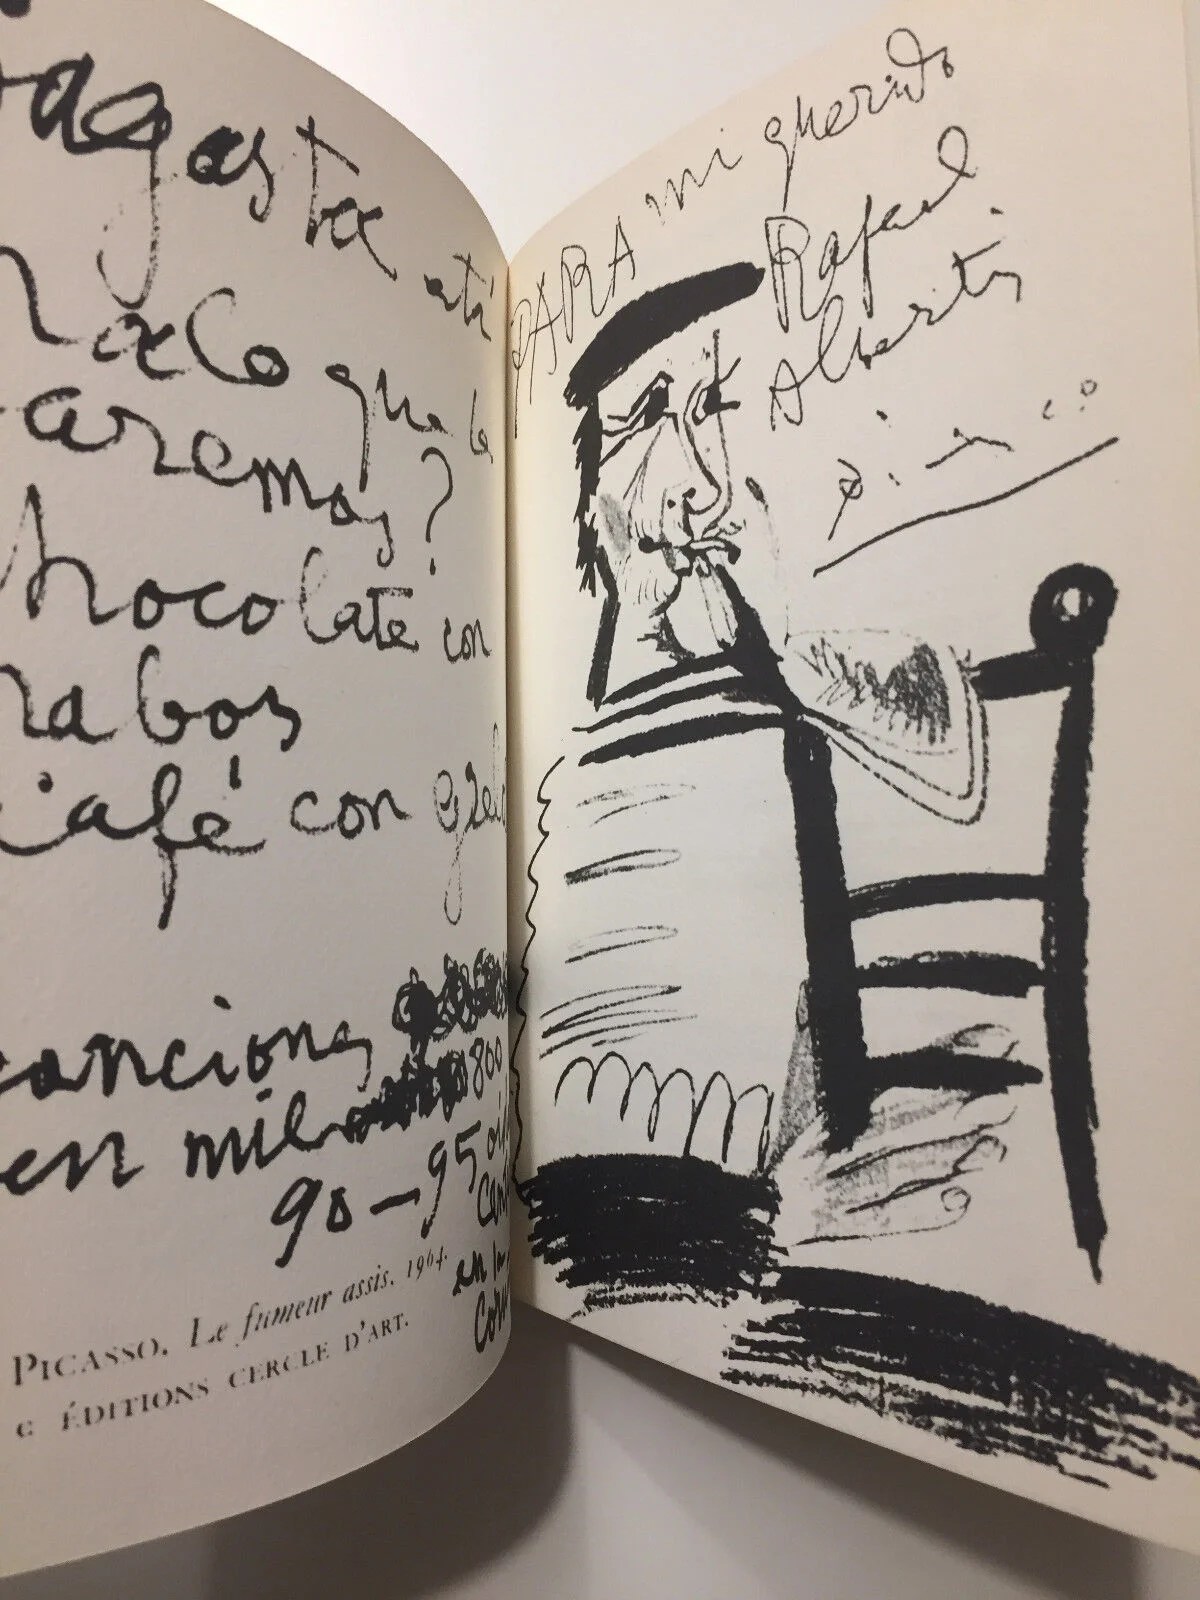 agasta atí
que le
aremos?
hocolate con
nabos
Café con
cancions
en mil 800
90-95
en la
PICASSO. Le fumeur assis. 1964.
© ÉDITIONS CERCLE D'ART.
PARA mi querido
Rafael
Alberti
Picasso